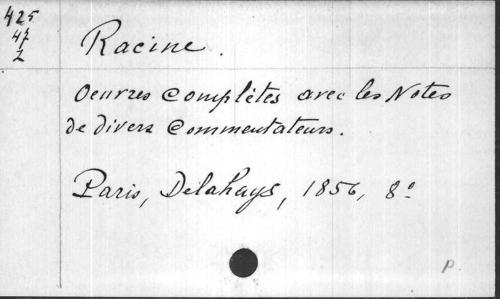 425
47
2
Racine.
Oeuvres complètes avec les Notes
de divers Commentateurs.
Paris, Delahays, 1856, 8º
p.